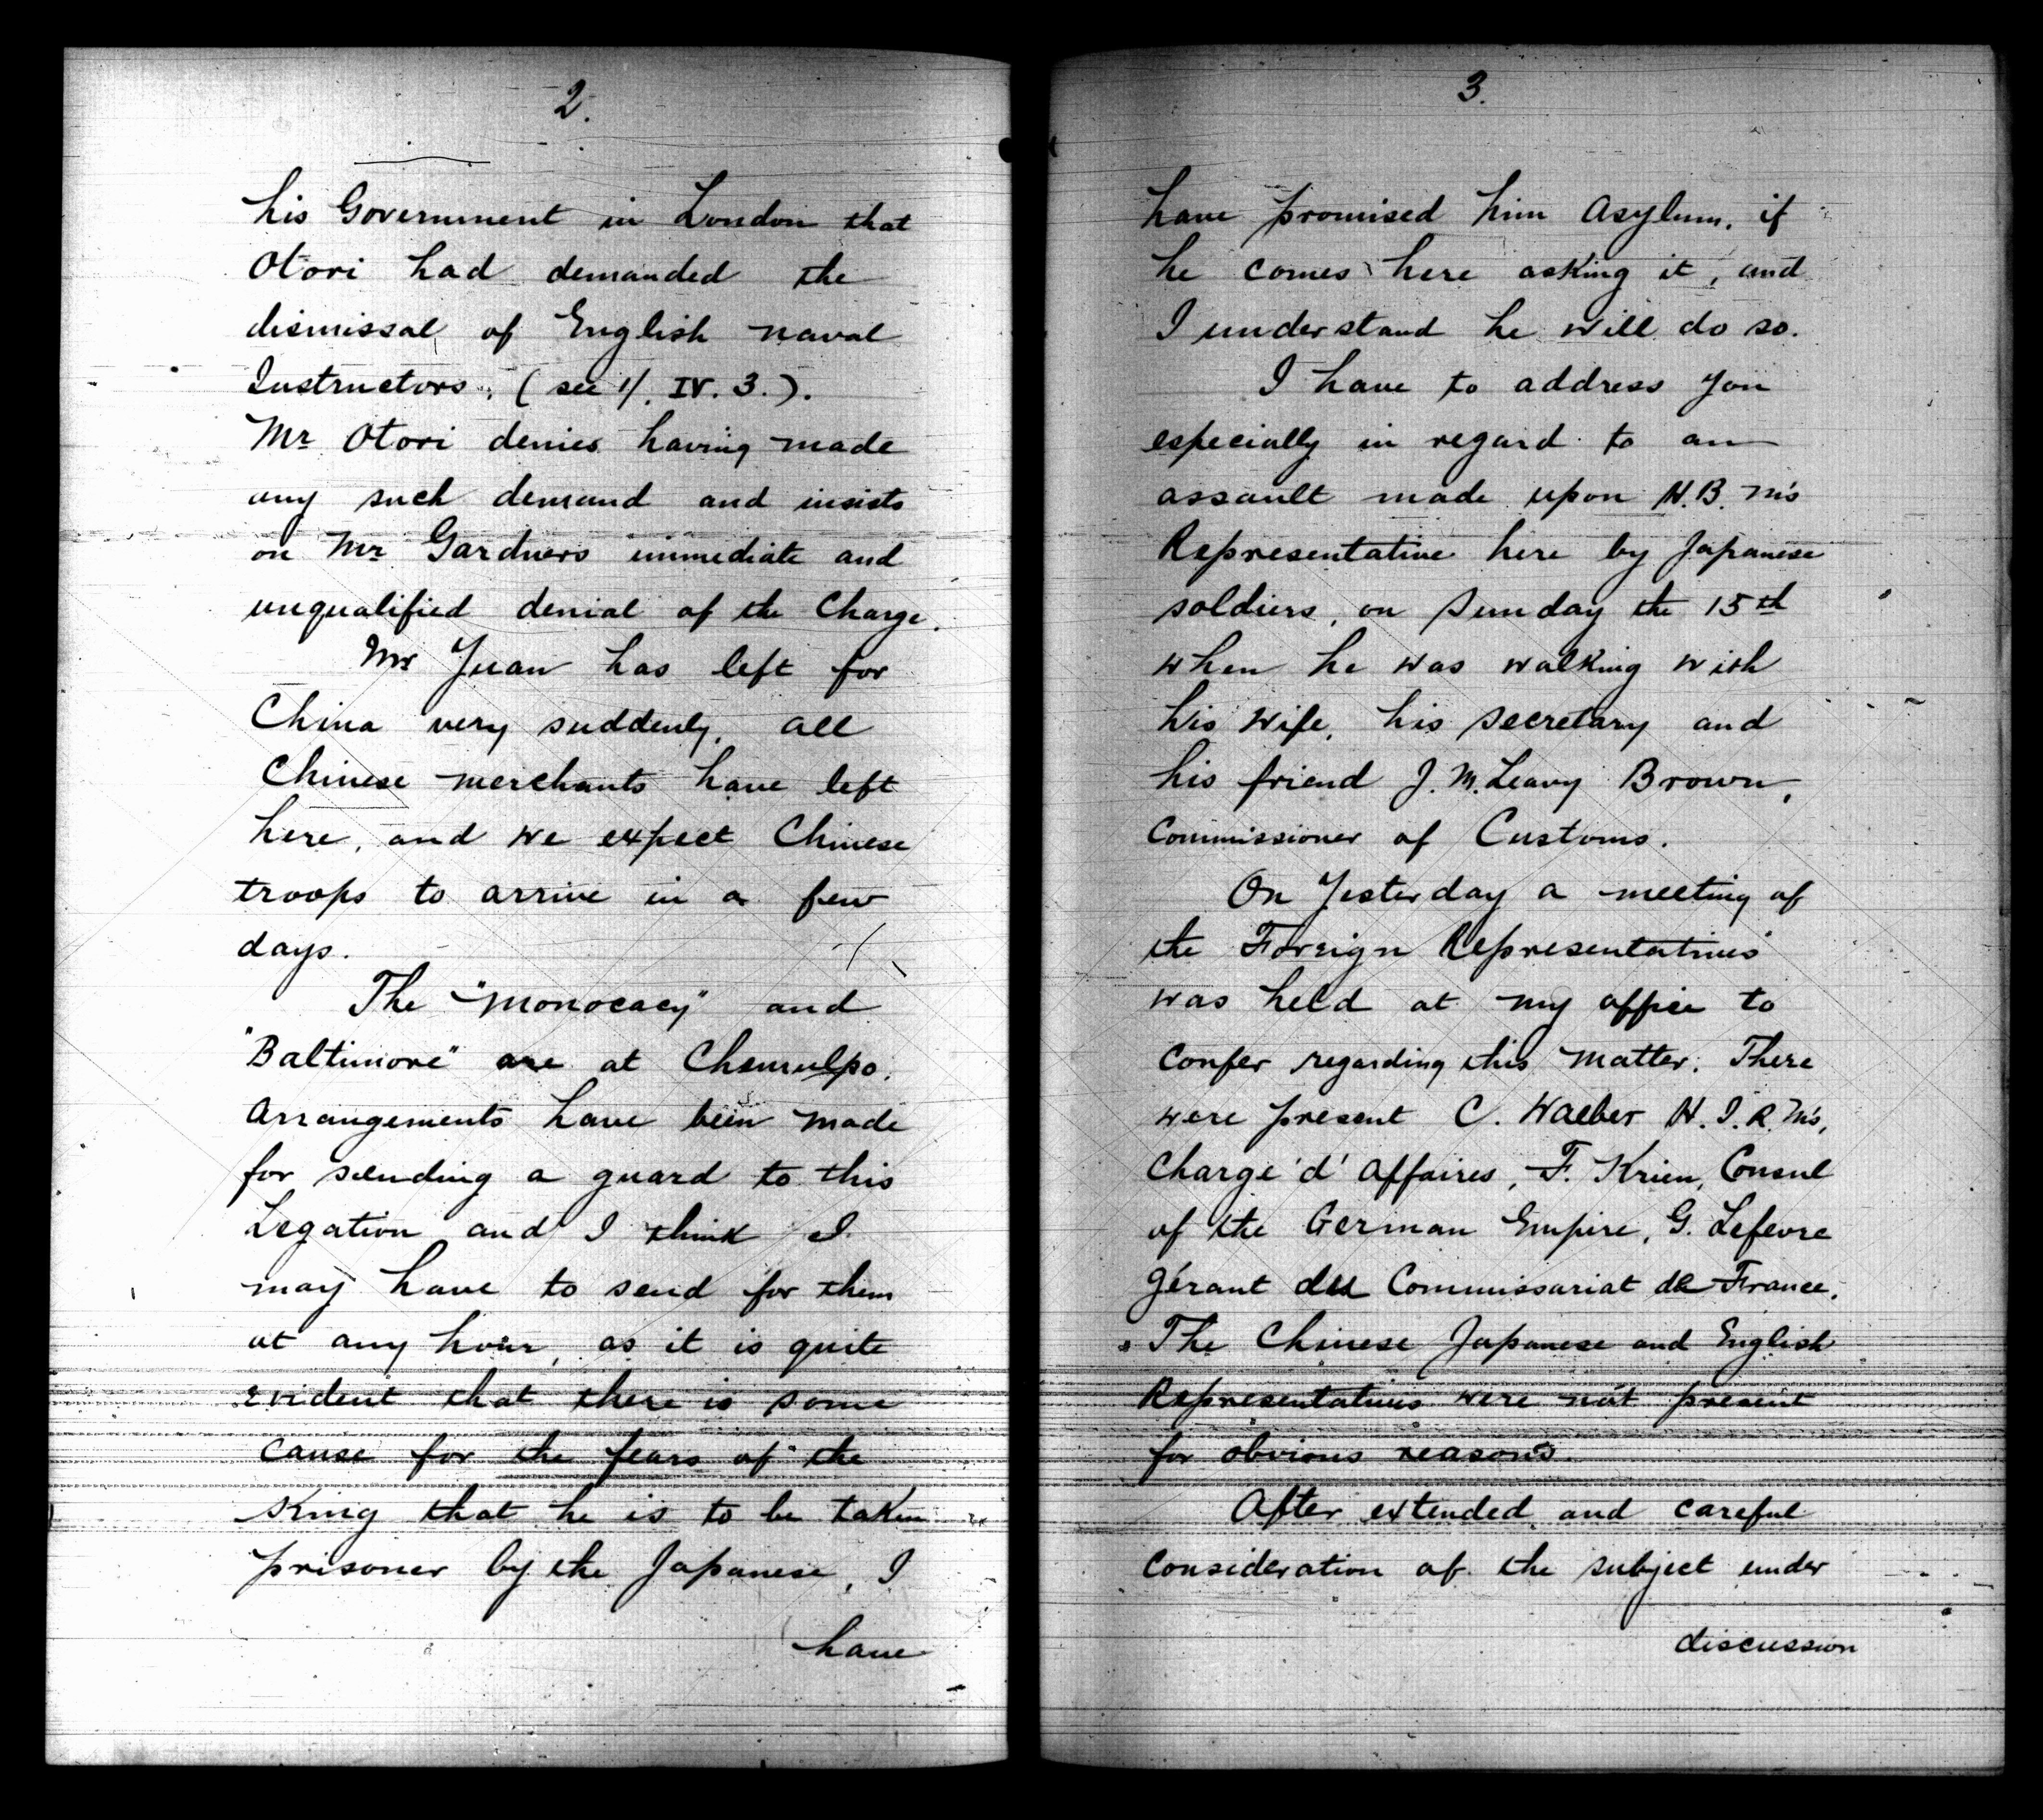 2.
his Government in London that
Otori had demanded the
dismissal of English naval
Instructors. (see 1/. IV. 3.).
Mr Otori denies having made
any such demand and insists
on Mr Gardners immediate and
unqualified denial of the Charge.
Mr Yuan has left for
China very suddenly, all
Chinese merchants have left
here, and we expect Chinese
troops to arrive in a few
days.
The "Monocacy" and
"Baltimore" are at Chemulpo.
Arrangements have been made
for sending a guard to this
Legation and I think I
may have to send for them
at any hour, as it is quite
evident that there is some
cause for the fears of the
King that he is to be taken
prisoner by the Japanese, I
have
3.
have promised him Asylum, if
he comes here asking it, and
I understand he will do so.
I have to address you
especially in regard to an
assault made upon H.B.M's
Representative here by Japanese
soldiers, on Sunday the 15th
when he was walking with
his wife, his secretary and
his friend J. McLeavy Brown,
Commissioner of Customs.
On Yesterday a meeting of
the Foreign Representatives
was held at my office to
confer regarding this matter. There
were present C. Waeber H.I.R.M's,
Chargé d' Affaires, F. Krien, Consul
of the German Empire, G. Lefevre
Gérant du Commissariat de France.
The Chinese Japanese and English
Representatives were not present
for obvious reasons.
After extended and careful
consideration of the subject under
discussion